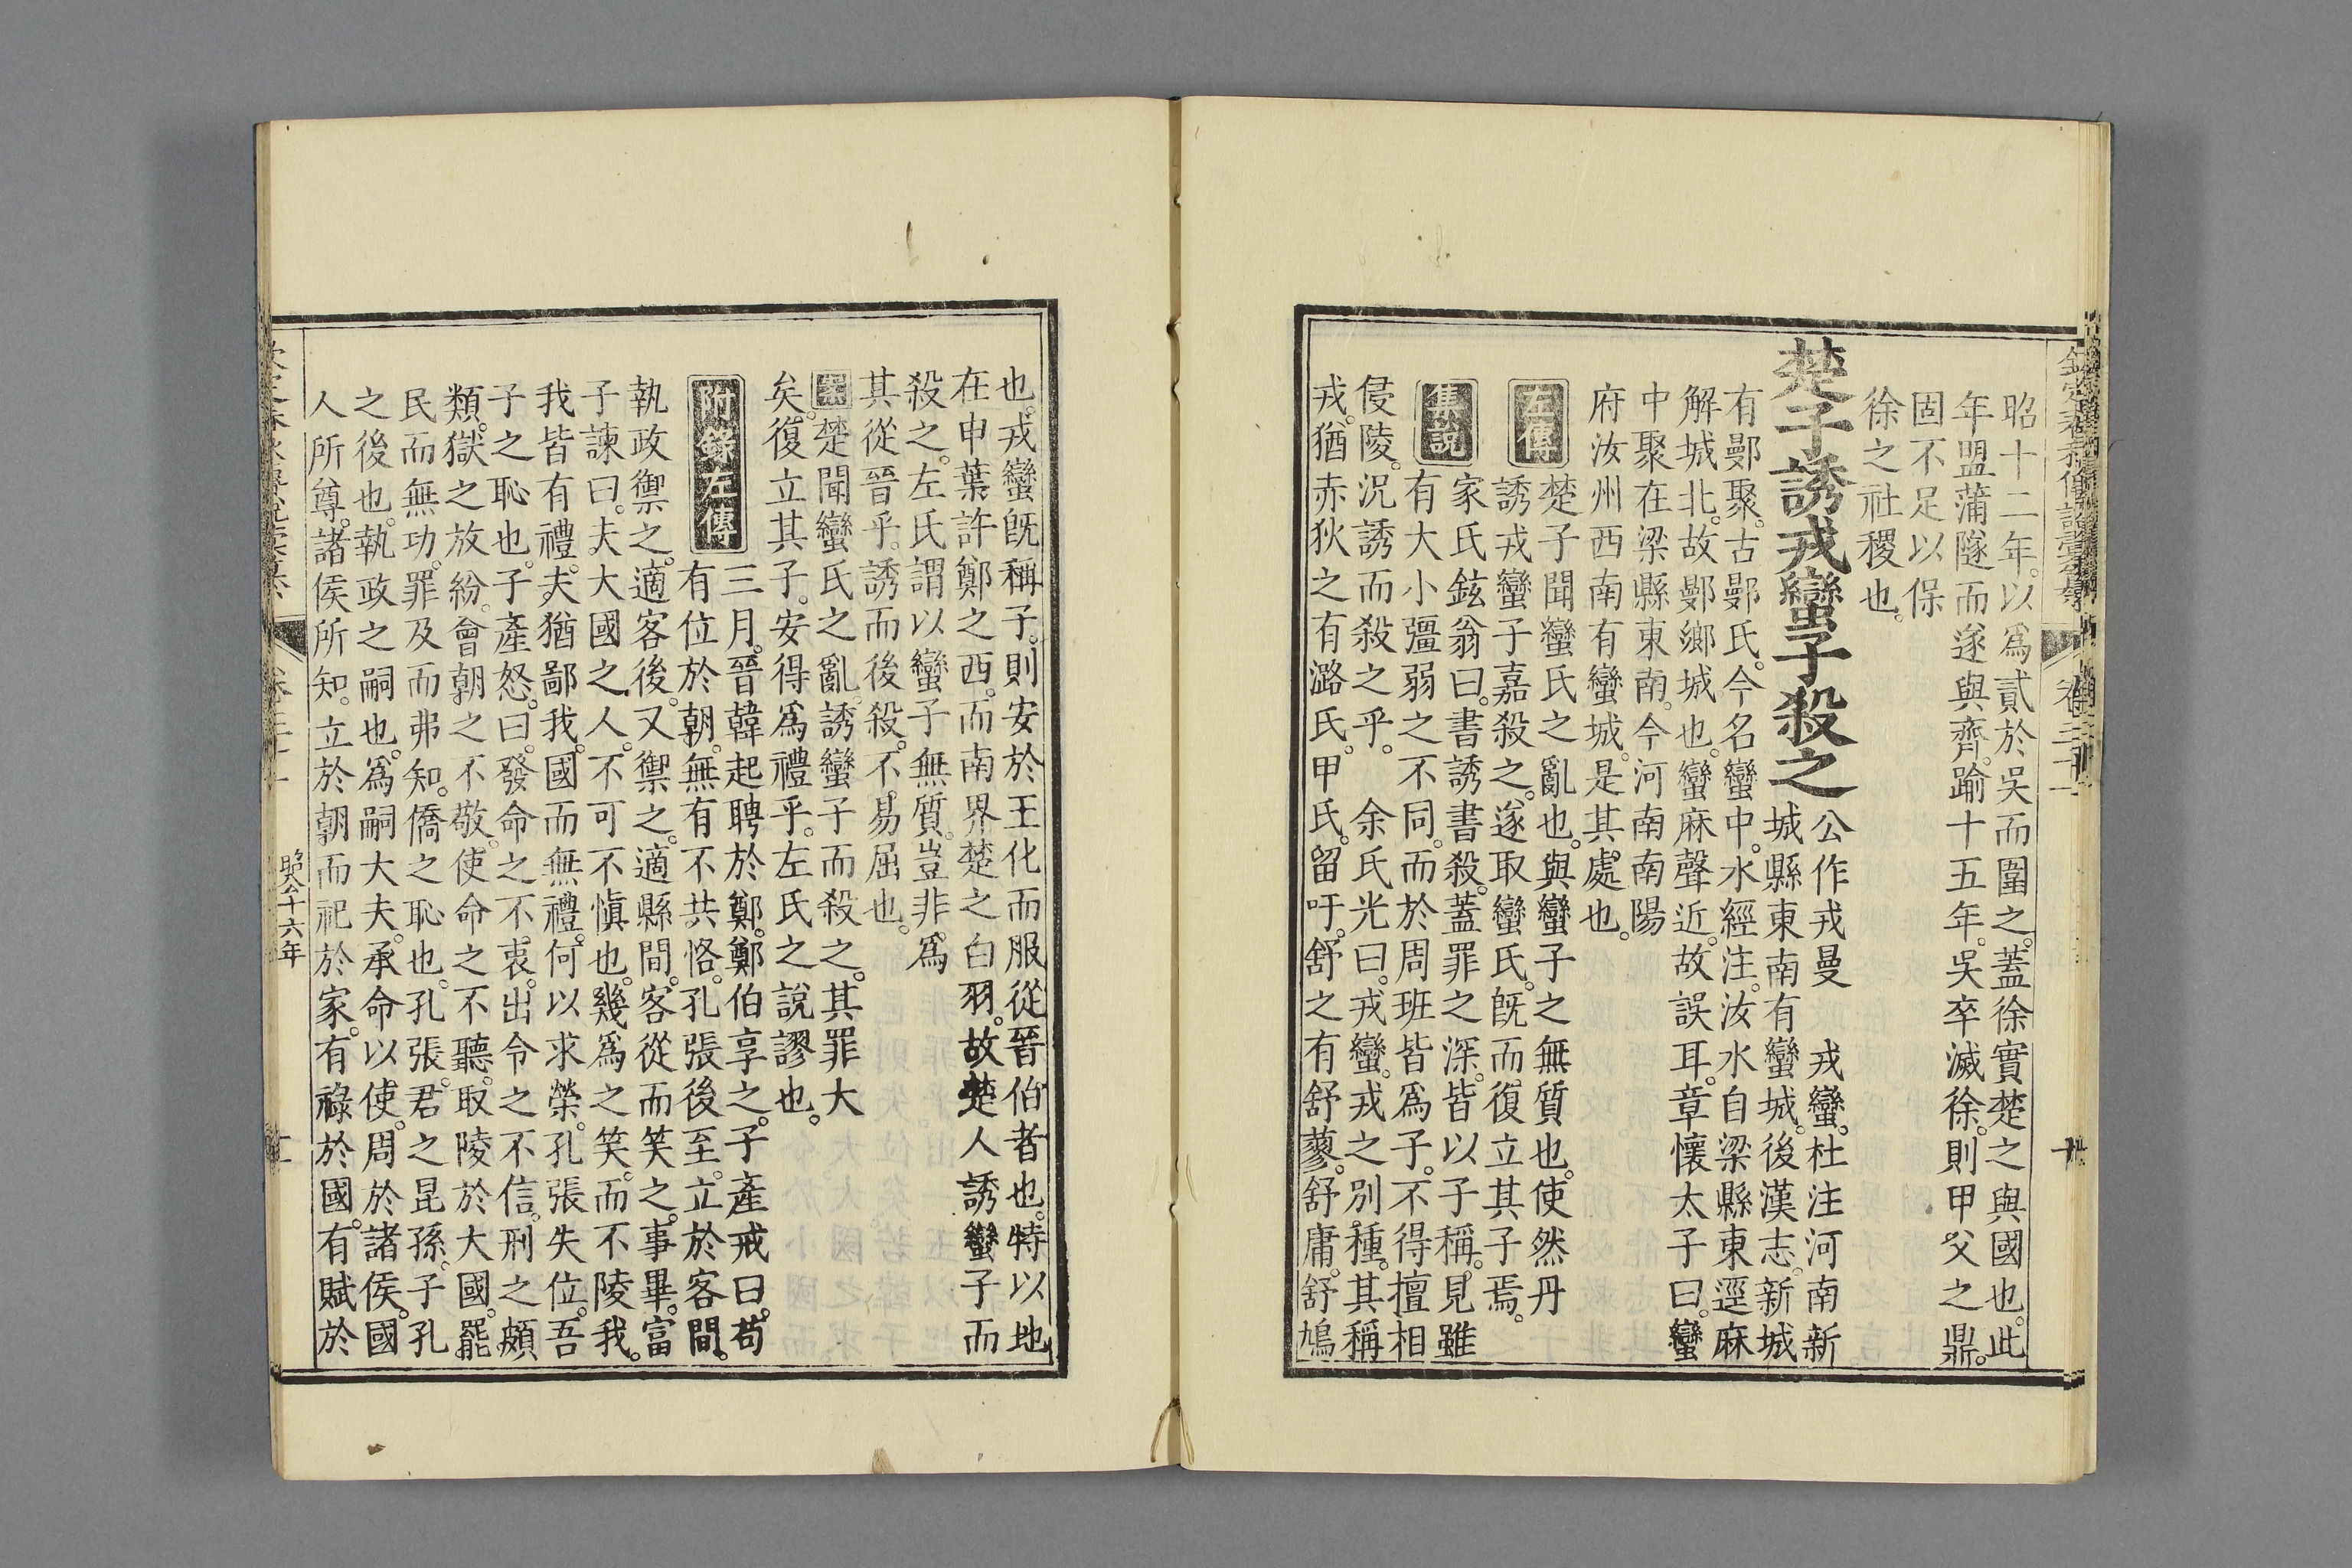 昭十二年。以爲貳於吳而圍之。蓋徐實楚之與國也。此
年盟蒲隧而遂與齊。踰十五年。吳卒滅徐。則甲父之鼎。
固不足以保
徐之社稷也。
楚子誘戎蠻子殺之
公作戎曼　戎蠻。杜注河南新
城縣東南有蠻城。後漢志。新城
有鄤聚。古鄤氏。今名蠻中。水經注。汝水自梁縣東逕麻
解城北。故鄤鄉城也。蠻麻聲近。故誤耳。章懷太子曰。蠻
中聚在梁縣東南。今河南南陽
府汝州西南有蠻城。是其處也。
左傳
楚子聞蠻氏之亂也。與蠻子之無質也。使然丹
誘戎蠻子嘉殺之。遂取蠻氏。旣而復立其子焉。
集說
家氏鉉翁曰。書誘書殺。蓋罪之深。皆以子稱。見雖
有大小彊弱之不同。而於周班皆爲子。不得擅相
侵陵。況誘而殺之乎。　余氏光曰。戎蠻。戎之別種。其稱
戎。猶赤狄之有潞氏。甲氏。留吁。舒之有舒蓼。舒庸。舒鳩
也。戎蠻旣稱子。則安於王化而服從晉伯者也。特以地
在申葉許鄭之西。而南界楚之白羽。故楚人誘蠻子而
殺之。左氏謂以蠻子無質。豈非爲
其從晉乎。誘而後殺。不易屈也。
案楚聞蠻氏之亂。誘蠻子而殺之。其罪大
矣。復立其子。安得爲禮乎。左氏之說謬也。
附錄左傳
三月。晉韓起聘於鄭。鄭伯享之。子產戒曰。苟
有位於朝。無有不共恪。孔張後至。立於客間。
執政禦之。適客後。又禦之。適縣間。客從而笑之。事畢。富
子諫曰。夫大國之人。不可不愼也。幾爲之笑。而不陵我。
我皆有禮。夫猶鄙我。國而無禮。何以求榮。孔張失位。吾
子之恥也。子產怒。曰。發命之不衷。出令之不信。刑之頗
類。獄之放紛。會朝之不敬。使命之不聽。取陵於大國。罷
民而無功。罪及而弗知。僑之恥也。孔張。君之昆孫。子孔
之後也。執政之嗣也。爲嗣大夫。承命以使。周於諸侯。國
人所尊。諸侯所知。立於朝而祀於家。有祿於國。有賦於
昭公十六年